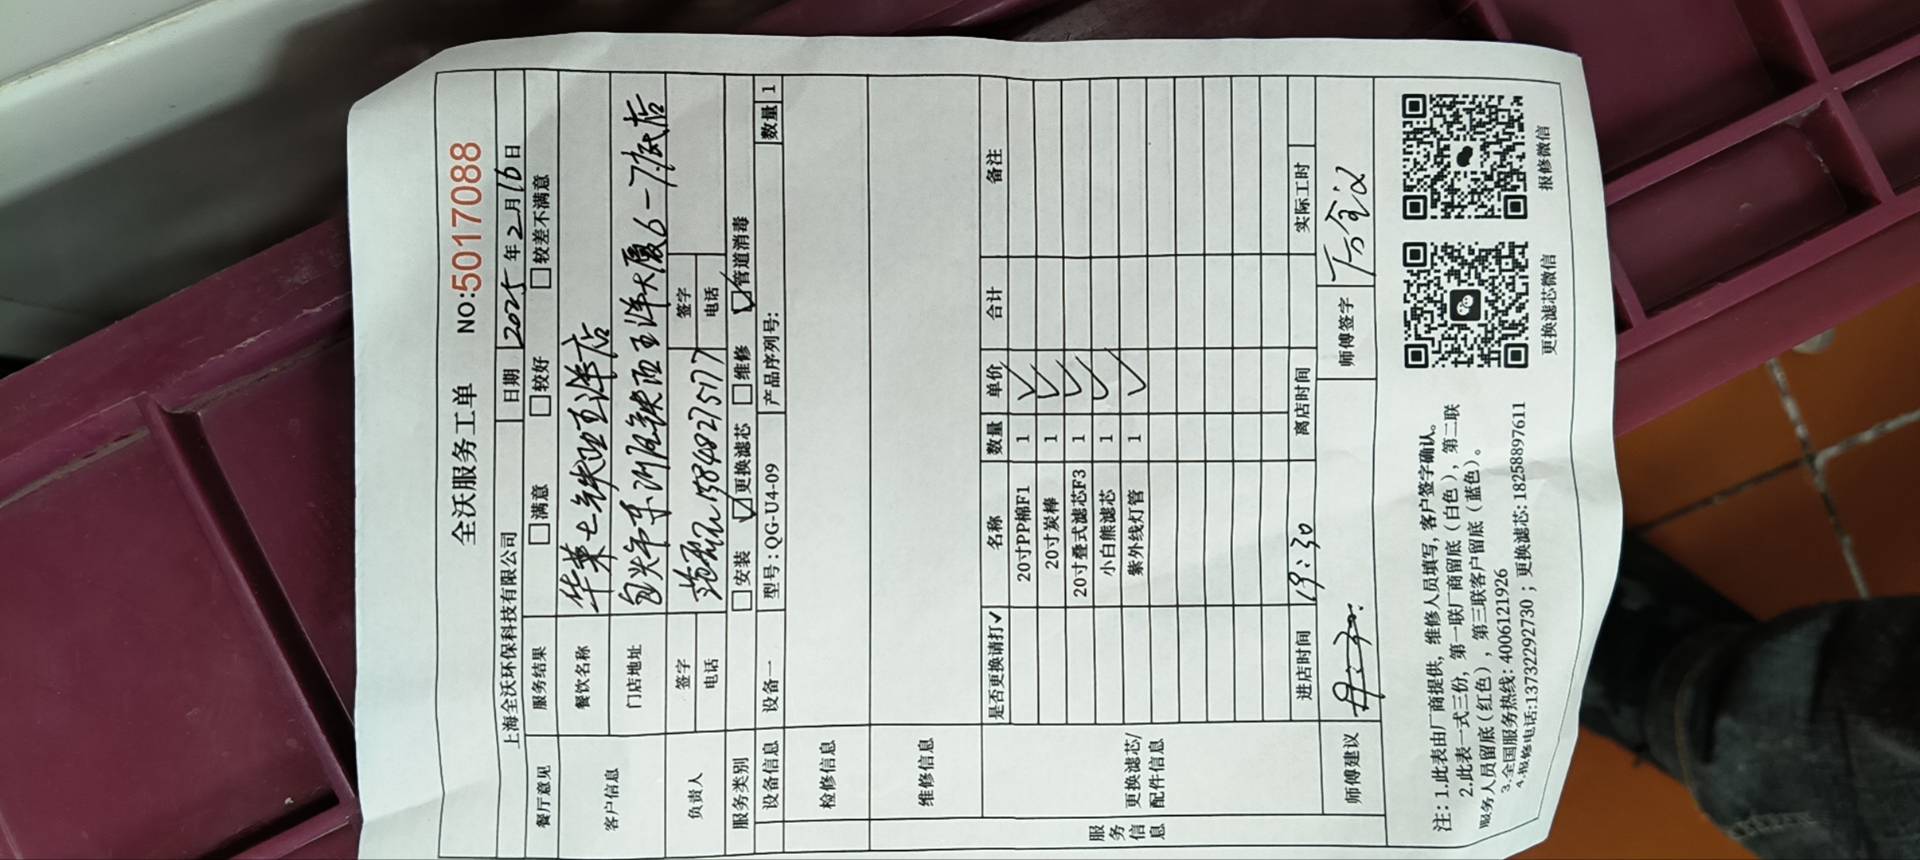 全沃服务工单 NO:5017088
上海全沃环保科技有限公司 日期 2025年2月16日
餐厅意见 服务结果 □满意 □较好 □较差不满意
客户信息 餐饮名称 华莱士铁西王洋店
门店地址 包头市 铁西王洋大厦6-7底店
负责人 签字 签字
电话 15848275177 电话
服务类别 □安装 ☑更换滤芯 □维修 ☑管道消毒
设备信息 设备一 型号:QG-U4-09 产品序列号: 数量 1
检修信息
维修信息
服务信息
更换滤芯/配件信息
是否更换请打✓ 名称 数量 单价 合计 备注
20寸PP棉F1 1 ✓
20寸炭棒 1 ✓
20寸叠式滤芯F3 1 ✓
小白熊滤芯 1 ✓
紫外线灯管 1 ✓
进店时间 19:30 离店时间 实际工时
师傅建议 师傅签字
注:1.此表由厂商提供,维修人员填写,客户签字确认。
2.此表一式三份,第一联厂商留底(白色),第二联
服务人员留底(红色),第三联客户留底(蓝色)。
3.全国服务热线:4006121926
4.报修电话:13732292730;更换滤芯:18258897611
更换滤芯微信 报修微信